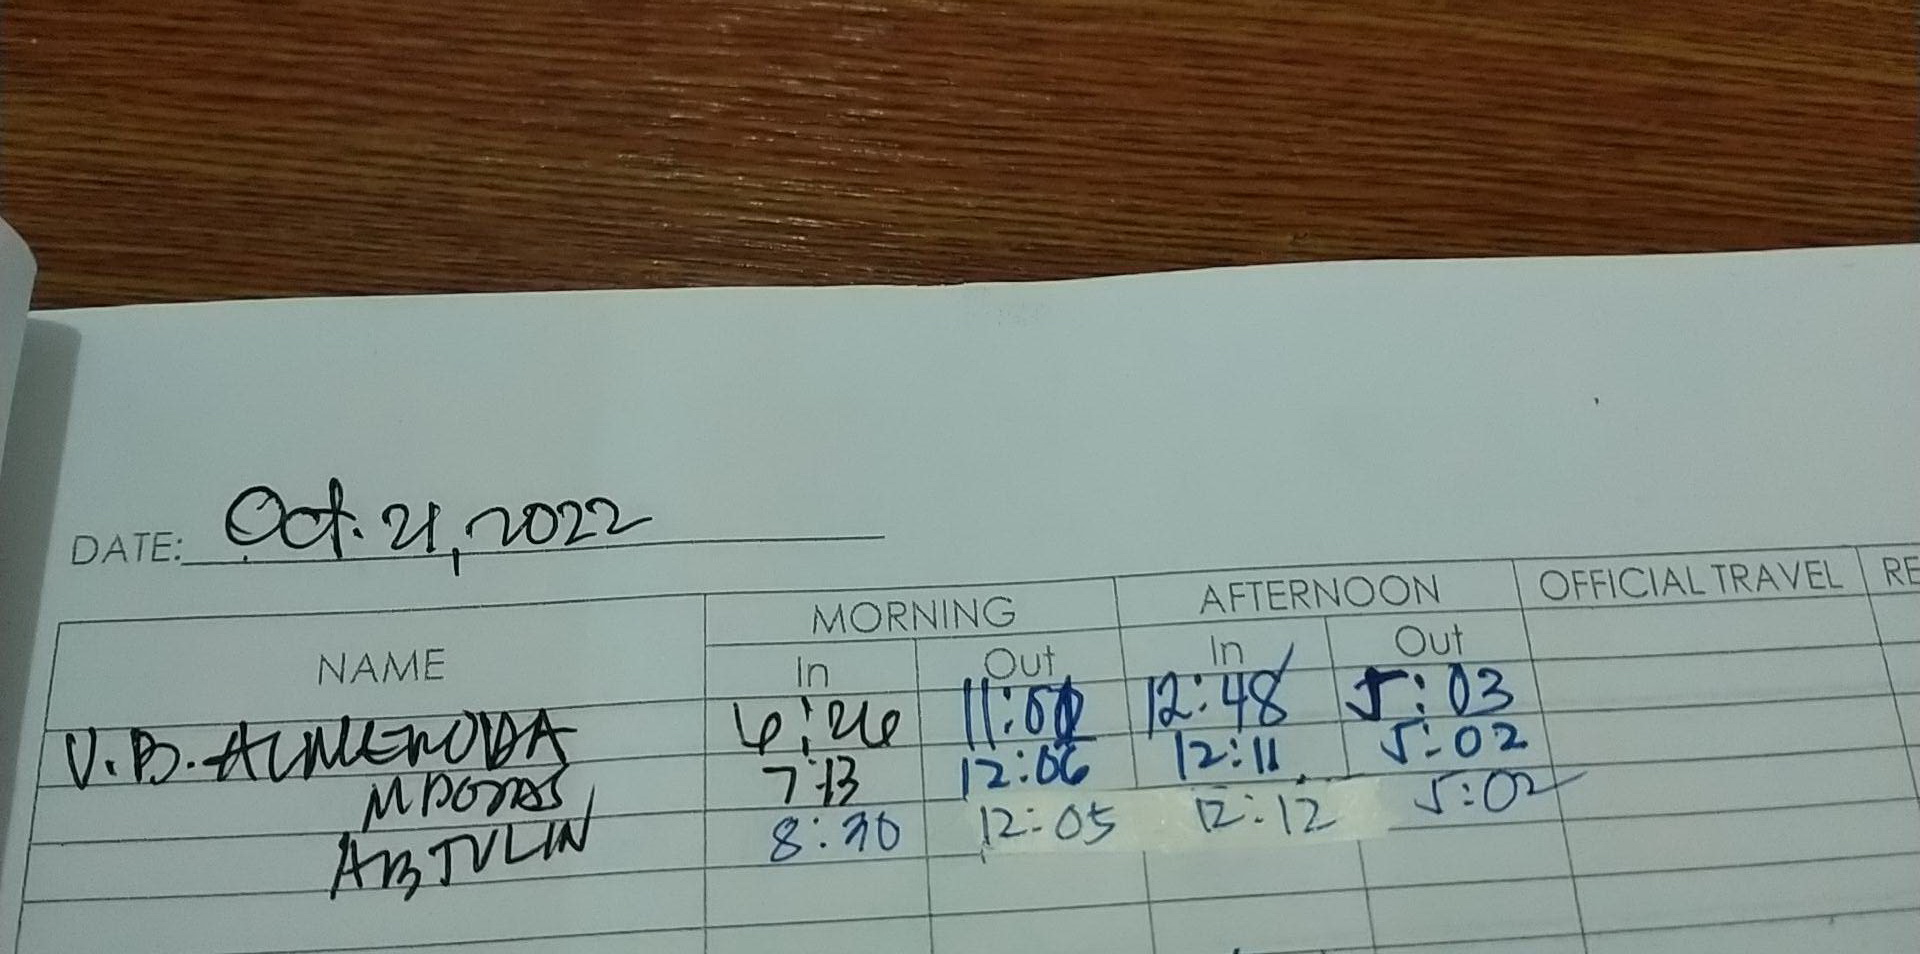 DATE: Oct. 21, 2022
NAME MORNING AFTERNOON OFFICIAL TRAVEL RE
In Out In Out
V.B. ALMENODA 6:26 12:48 5:03
7:13 12:06 12:11 5:02
AB JULIN 8:30 12:05 12:12 5:02